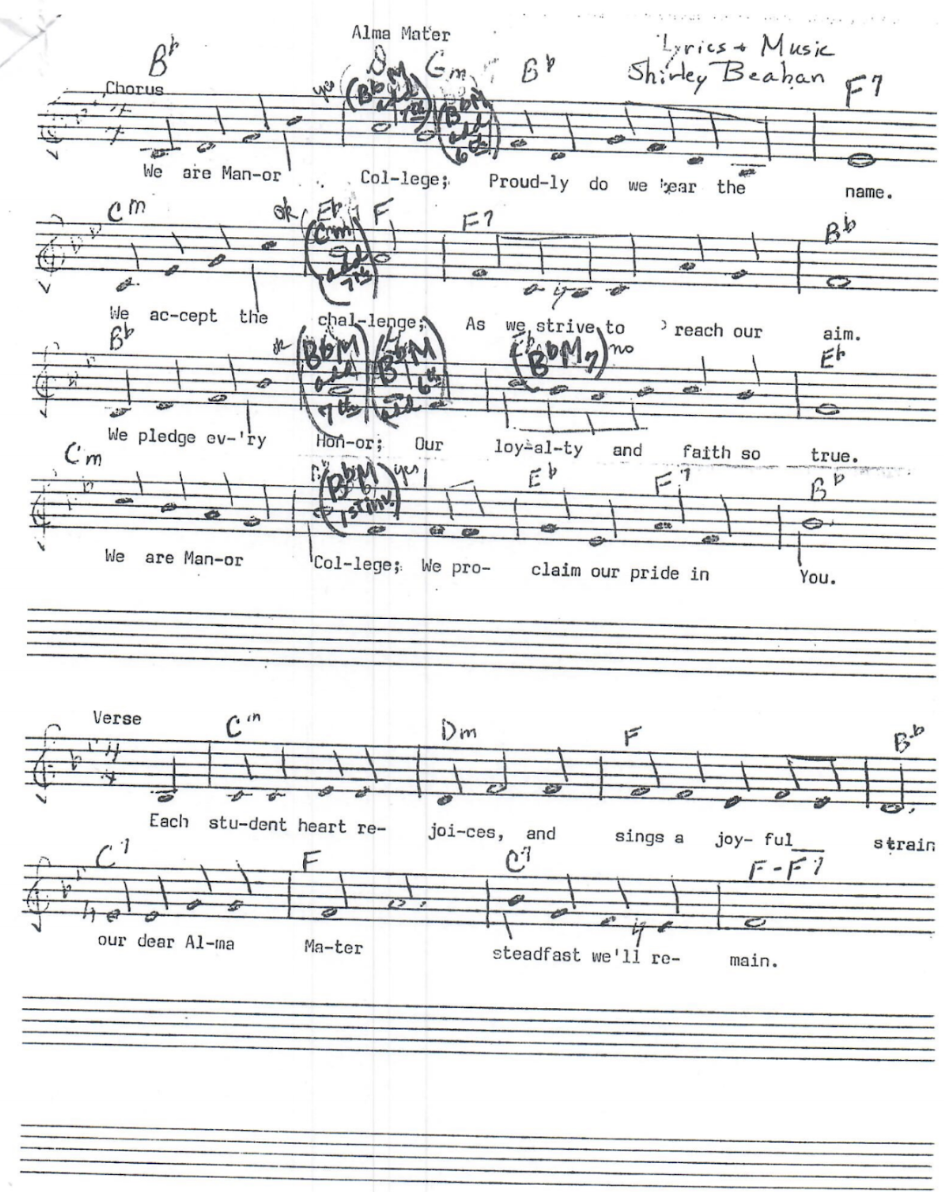 Alma Mater
Lyrics + Music
Shirley Beahan
B♭ Gm B♭ F7
Chorus
yes (B♭M add 7th) (B♭M add 6th)
We are Man-or Col-lege; Proud-ly do we bear the name.
Cm ok E♭ F F7 B♭
(Cm add 7th)
We ac-cept the chal-lenge; As we strive to reach our aim.
B♭ (B♭M add 7th) (B♭M 6th add) (B♭M7) no E♭
We pledge ev-'ry Hon-or; Our loy-al-ty and faith so true.
Cm (B♭M 1st inv.) yes E♭ F7 B♭
We are Man-or Col-lege; We pro- claim our pride in You.
Verse
Cm Dm F B♭
Each stu-dent heart re- joi-ces, and sings a joy- ful__ strain
C7 F C7 F-F7
our dear Al-ma Ma-ter steadfast we'll re- main.